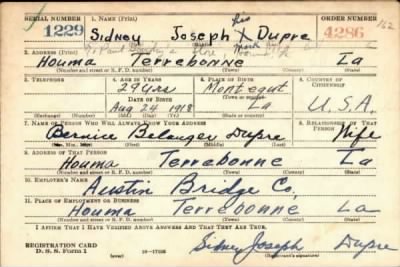 SERIAL NUMBER 1. NAME (Print) ORDER NUMBER
1229 Sidney Joseph X Dupre 4286
his
mark
162
(First) (Middle) (Last)
2. ADDRESS (Print)
Houma Terrebonne La
(Number and street or R. F. D. number) (Town) (County) (State)
3. TELEPHONE 4. AGE IN YEARS 5. PLACE OF BIRTH 6. COUNTRY OF CITIZENSHIP
29 yrs Montegut
DATE OF BIRTH (Town or county)
Aug 24 1918 La U.S.A.
(Exchange) (Number) (Mo.) (Day) (Yr.) (State or country)
7. NAME OF PERSON WHO WILL ALWAYS KNOW YOUR ADDRESS 8. RELATIONSHIP OF THAT PERSON
Bernice Belanger Dupre Wife
(Mr., Mrs., Miss) (First) (Middle) (Last)
9. ADDRESS OF THAT PERSON
Houma Terrebonne La
(Number and street or R. F. D. number) (Town) (County) (State)
10. EMPLOYER'S NAME
Austin Bridge Co.
11. PLACE OF EMPLOYMENT OR BUSINESS
Houma Terrebonne La
(Number and street or R. F. D. number) (Town) (County) (State)
I AFFIRM THAT I HAVE VERIFIED ABOVE ANSWERS AND THAT THEY ARE TRUE.
REGISTRATION CARD
D. S. S. Form 1 16—17105 Sidney Joseph Dupre